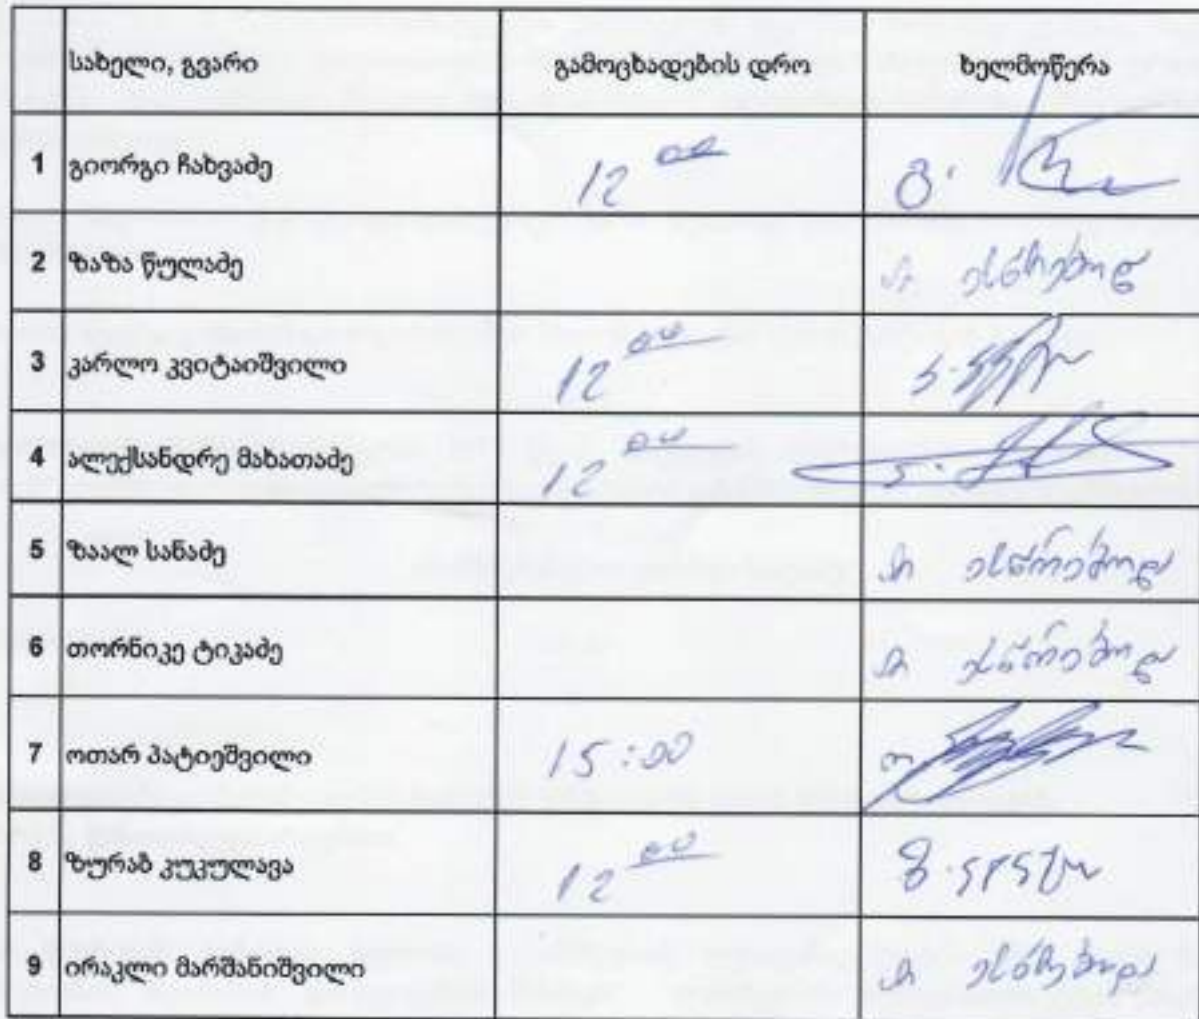 სახელი, გვარი გამოცხადების დრო ხელმოწერა
1 გიორგი ჩახვაძე 12 00 გ.
2 ზაზა წულაძე არ ესწრებოდა
3 კარლო კვიტაიშვილი 12 00
4 ალექსანდრე მახათაძე 12 00
5 ზაალ სანაძე არ ესწრებოდა
6 თორნიკე ტიკაძე არ ესწრებოდა
7 ოთარ პატიეშვილი 15:00
8 ზურაბ კუკულავა 12 00
9 ირაკლი მარშანიშვილი არ ესწრებოდა